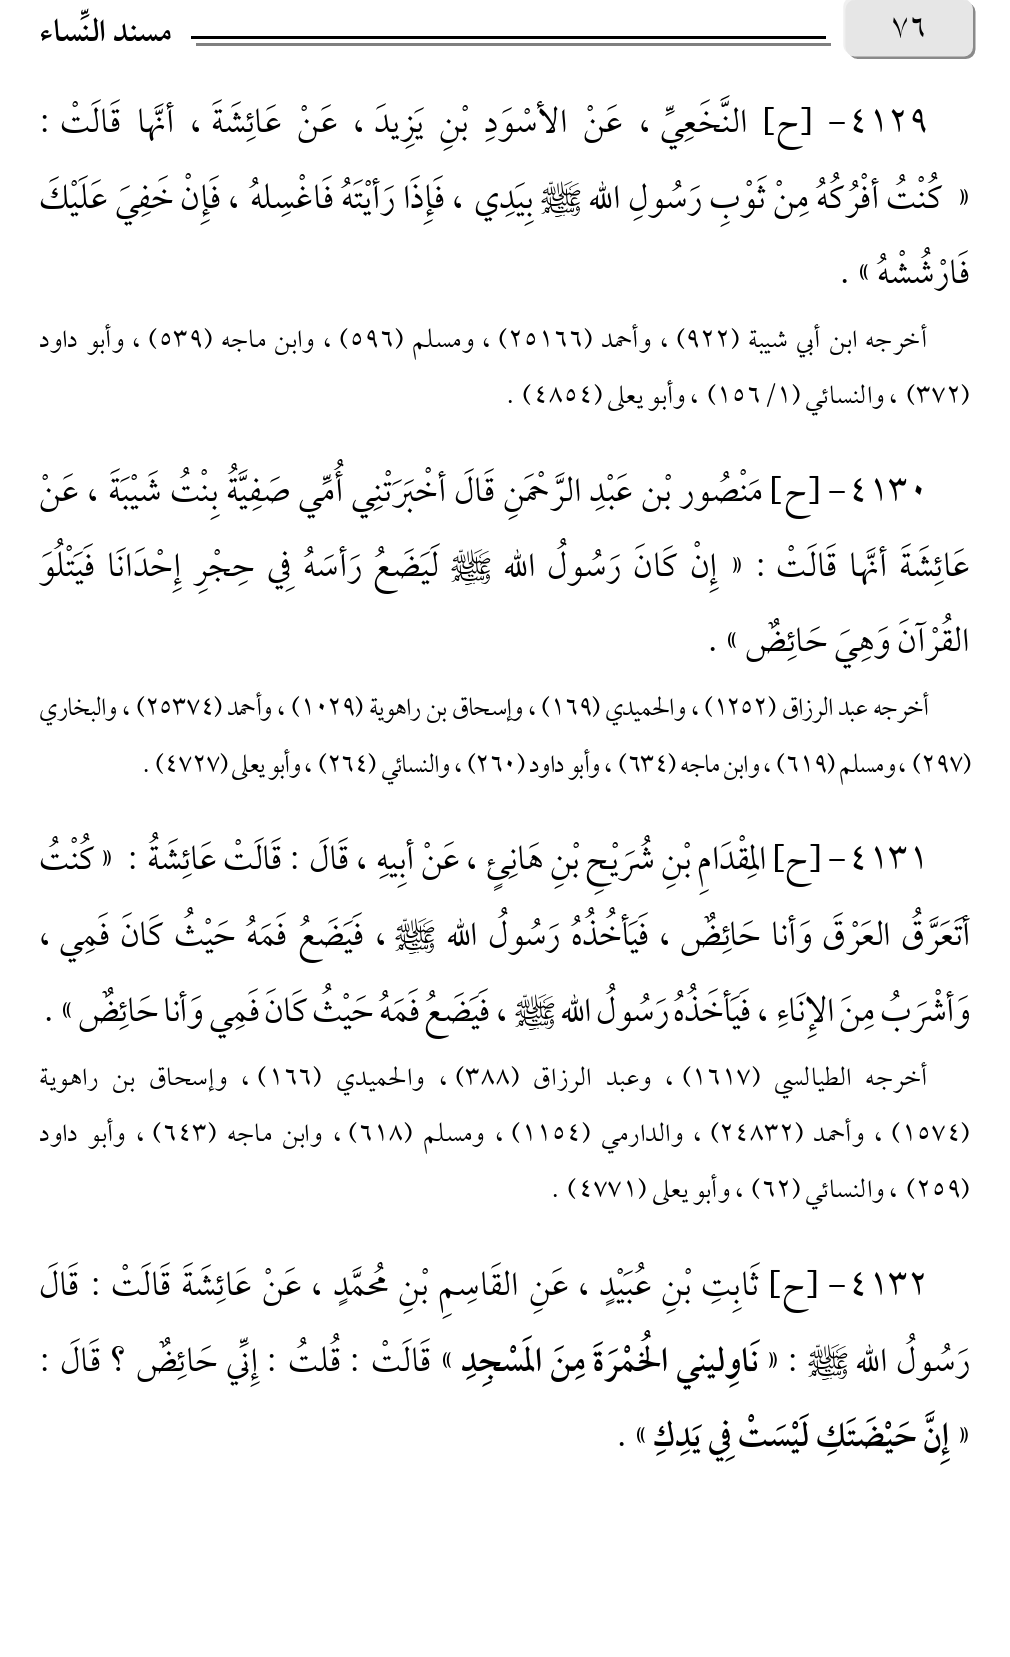 ٧٦
مسند النِّساء
٤١٢٩- [ح] النَّخَعِيِّ ، عَنْ الأسْوَدِ بْنِ يَزِيدَ ، عَنْ عَائِشَةَ ، أنَّها قَالَتْ :
« كُنْتُ أفْرُكُهُ مِنْ ثَوْبِ رَسُولِ الله ﷺ بِيَدِي ، فَإِذَا رَأيْتَهُ فَاغْسِلهُ ، فَإِنْ خَفِيَ عَلَيْكَ
فَارْشُشْهُ » .
أخرجه ابن أبي شيبة (٩٢٢) ، وأحمد (٢٥١٦٦) ، ومسلم (٥٩٦) ، وابن ماجه (٥٣٩) ، وأبو داود
(٣٧٢) ، والنسائي (١/ ١٥٦) ، وأبو يعلى (٤٨٥٤) .
٤١٣٠- [ح] مَنْصُور بْن عَبْدِ الرَّحْمَنِ قَالَ أخْبَرَتْنِي أُمِّي صَفِيَّةُ بِنْتُ شَيْبَةَ ، عَنْ
عَائِشَةَ أنَّها قَالَتْ : « إِنْ كَانَ رَسُولُ الله ﷺ لَيَضَعُ رَأسَهُ فِي حِجْرِ إِحْدَانَا فَيَتْلُوَ
القُرْآنَ وَهِيَ حَائِضٌ » .
أخرجه عبد الرزاق (١٢٥٢) ، والحميدي (١٦٩) ، وإسحاق بن راهوية (١٠٢٩) ، وأحمد (٢٥٣٧٤) ، والبخاري
(٢٩٧) ، ومسلم (٦١٩) ، وابن ماجه (٦٣٤) ، وأبو داود (٢٦٠) ، والنسائي (٢٦٤) ، وأبو يعلى (٤٧٢٧) .
٤١٣١- [ح] المِقْدَامِ بْنِ شُرَيْحِ بْنِ هَانِئٍ ، عَنْ أبِيهِ ، قَالَ : قَالَتْ عَائِشَةُ : « كُنْتُ
أتَعَرَّقُ العَرْقَ وَأنا حَائِضٌ ، فَيَأخُذُهُ رَسُولُ الله ﷺ ، فَيَضَعُ فَمَهُ حَيْثُ كَانَ فَمِي ،
وَأشْرَبُ مِنَ الإِنَاءِ ، فَيَأخَذُهُ رَسُولُ الله ﷺ ، فَيَضَعُ فَمَهُ حَيْثُ كَانَ فَمِي وَأنا حَائِضٌ » .
أخرجه الطيالسي (١٦١٧) ، وعبد الرزاق (٣٨٨) ، والحميدي (١٦٦) ، وإسحاق بن راهوية
(١٥٧٤) ، وأحمد (٢٤٨٣٢) ، والدارمي (١١٥٤) ، ومسلم (٦١٨) ، وابن ماجه (٦٤٣) ، وأبو داود
(٢٥٩) ، والنسائي (٦٢) ، وأبو يعلى (٤٧٧١) .
٤١٣٢- [ح] ثَابِتِ بْنِ عُبَيْدٍ ، عَنِ القَاسِمِ بْنِ مُحمَّدٍ ، عَنْ عَائِشَةَ قَالَتْ : قَالَ
رَسُولُ الله ﷺ : « نَاوِليني الخُمْرَةَ مِنَ المَسْجِدِ » قَالَتْ : قُلتُ : إِنِّي حَائِضٌ ؟ قَالَ :
« إِنَّ حَيْضَتَكِ لَيْسَتْ فِي يَدِكِ » .